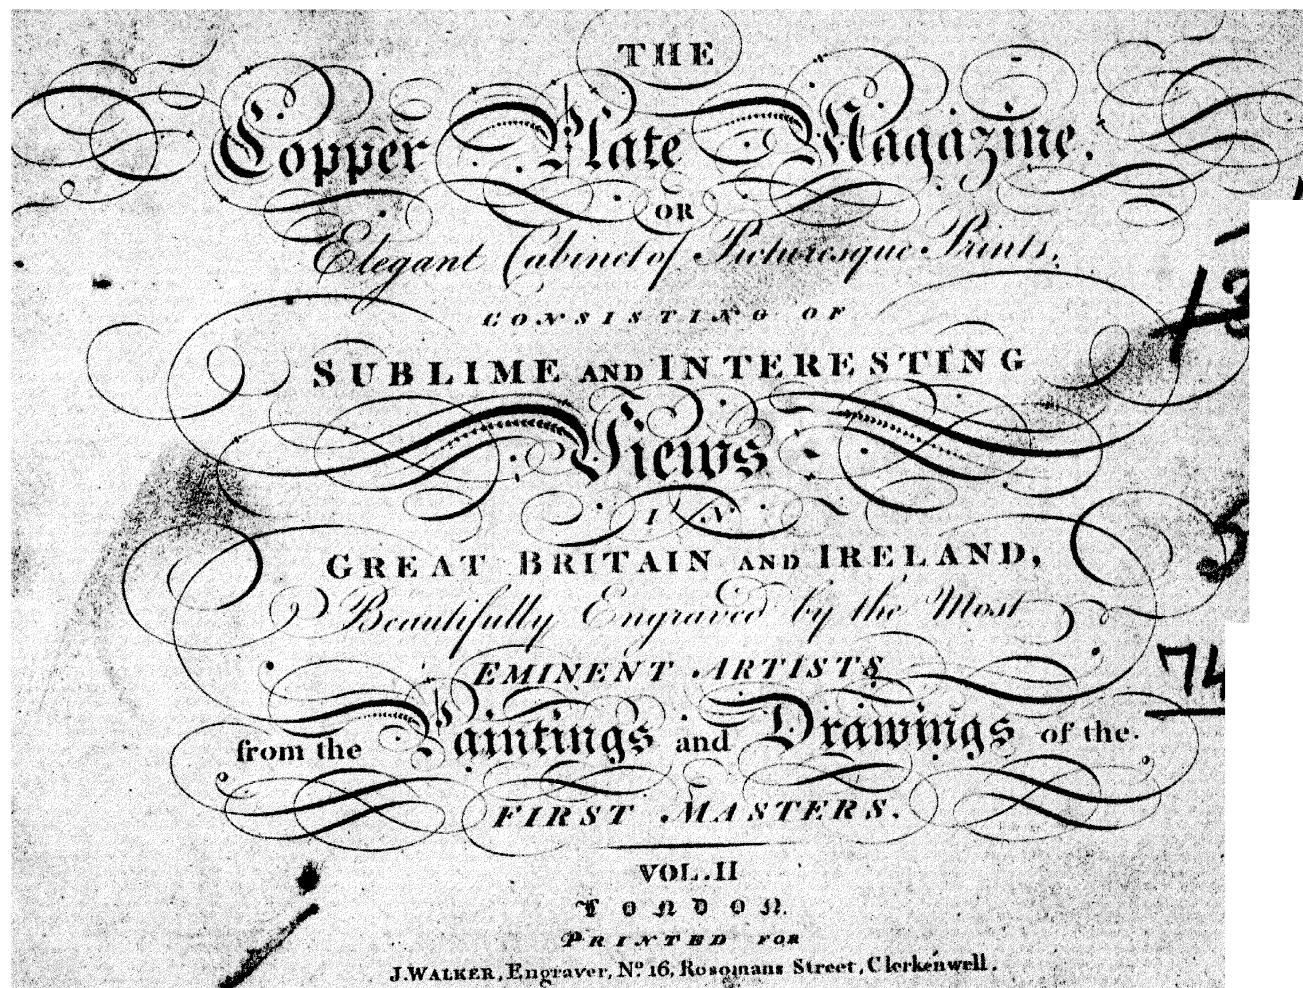 THE
Copper Plate Magazine.
OR
Elegant Cabinet of Picturesque Prints,
CONSISTING OF
SUBLIME AND INTERESTING
Views
IN
GREAT BRITAIN AND IRELAND,
Beautifully Engraved by the Most
EMINENT ARTISTS
from the Paintings and Drawings of the
FIRST MASTERS.
VOL. II
LONDON.
PRINTED FOR
J. WALKER, Engraver, No. 16, Rosomans Street, Clerkenwell.
74